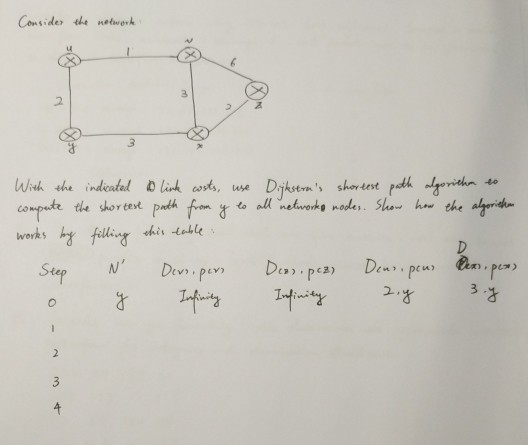 Consider the network
u 1 v
6
2 3 z
2
y 3 x
With the indicated link costs, use Dijkstra's shortest path algorithm to
compute the shortest path from y to all network nodes. Show how the algorithm
works by filling this table:
Step N' D(v), p(v) D(z), p(z) D(u), p(u) D(x), p(x)
0 y Infinity Infinity 2,y 3.y
1
2
3
4